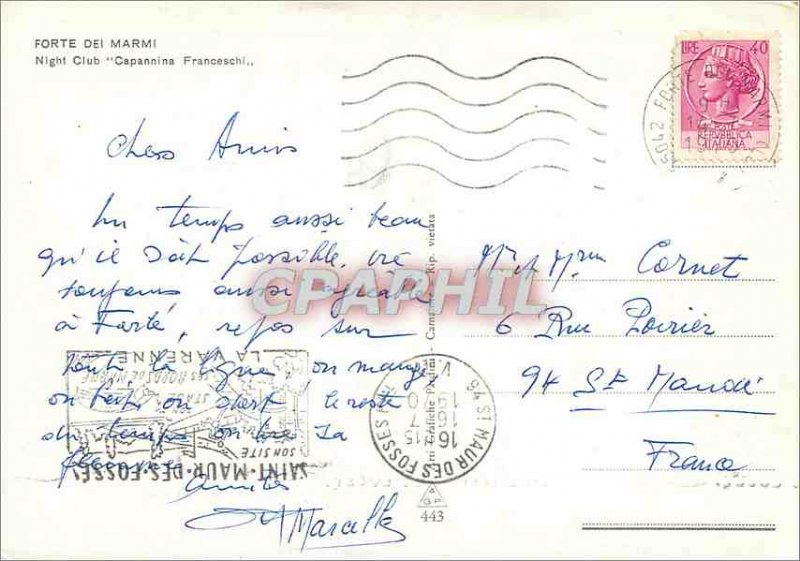 FORTE DEI MARMI
Night Club "Capannina Franceschi"
LIRE 40
POSTE
REPUBBLICA
ITALIANA
Chers Amis
Un temps aussi beau
qu'il soit possible. vie
toujours aussi agréable
à Forté, repos sur
toute la ligne, on mange
on boit, on dort le reste
du temps on tire sa
flemme
amitiés
Marcelle
Mr et Mme Cornet
6 Rue Poirier
94 St Mandé
France
CPAPHIL
SAINT-MAUR-DES-FOSSES
SON SITE
SES BORDS DE MARNE
LA VARENNE
94 ST MAUR DES FOSSES
16 H 15
16-7
Rip. vietata
Arti Grafiche
AGP
443